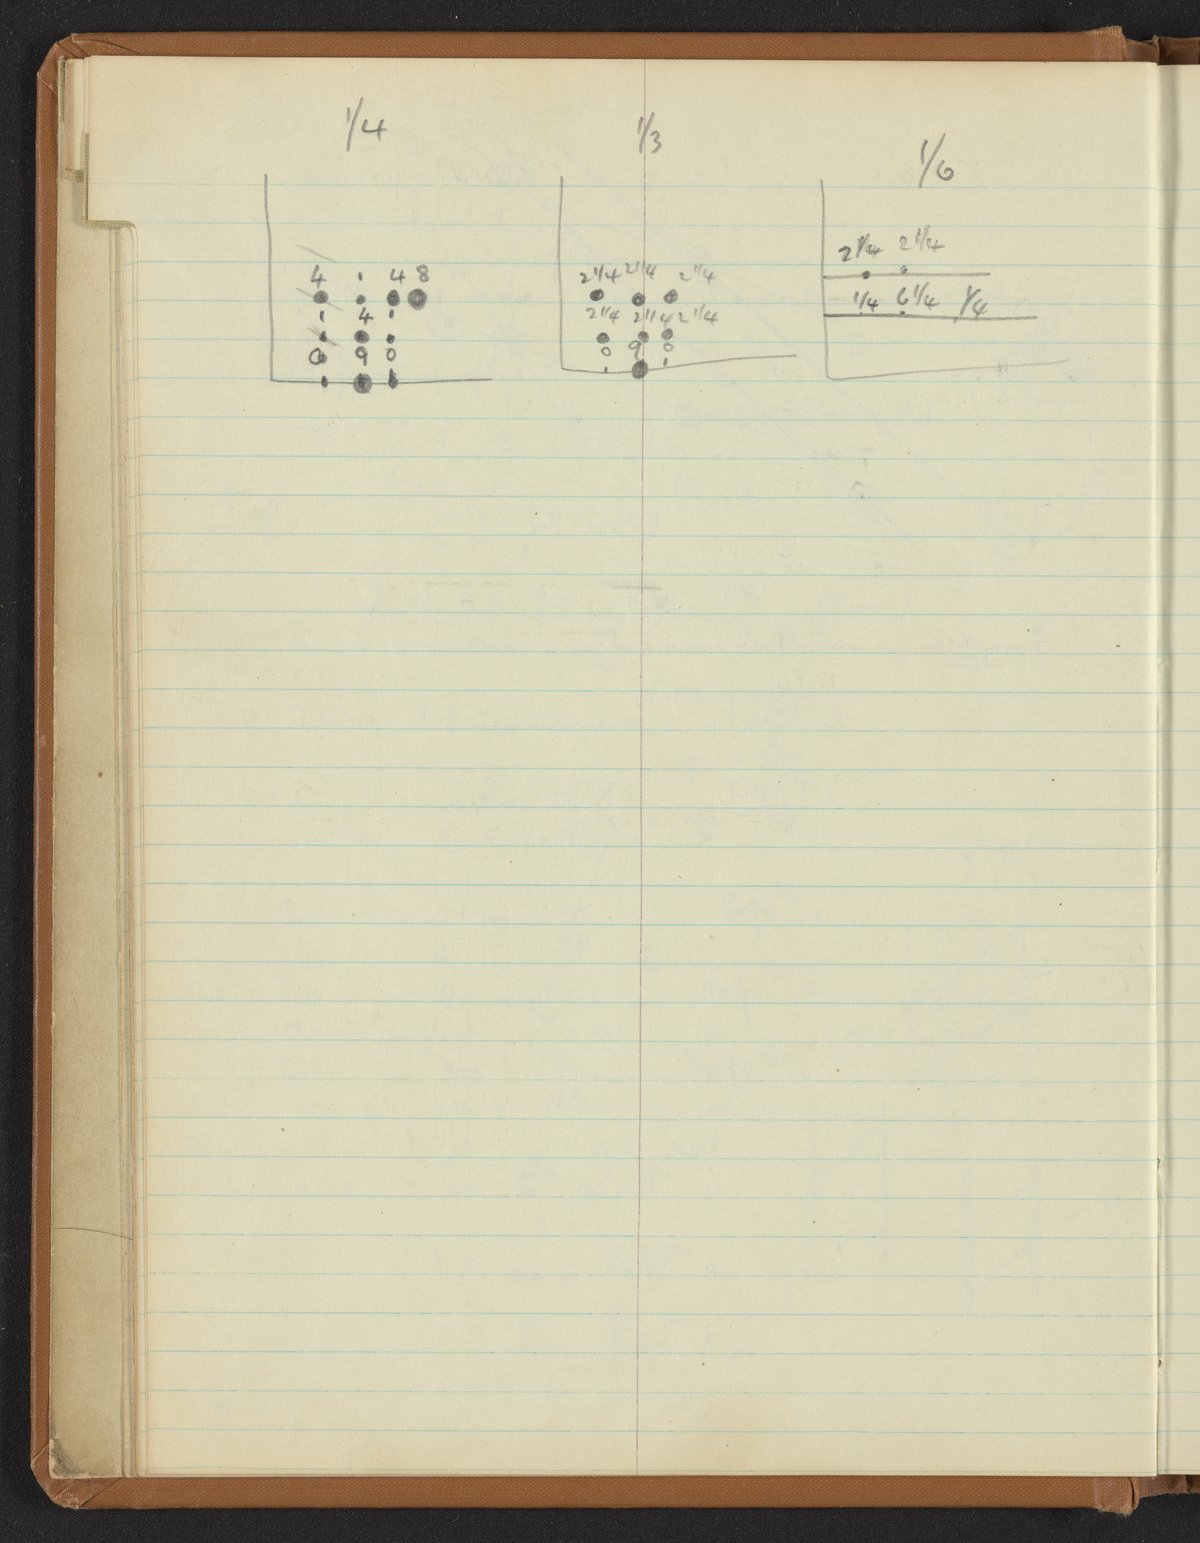 1/4 1/3 1/6
4 1 4 8
1 4 1
0 9 0
2 1/4 2 1/4 2 1/4
2 1/4 2 1/4 2 1/4
0 9 0
2 1/4 2 1/4
1/4 6 1/4 1/4